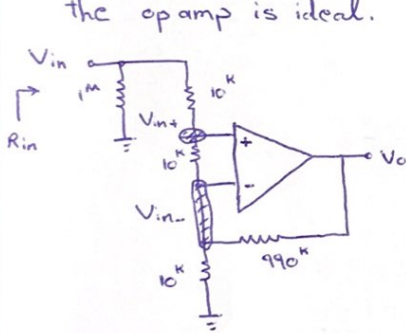 the op amp is ideal.
Vin
1M
10K
Rin
Vin+
+
10K
Vo
-
Vin-
990K
10K